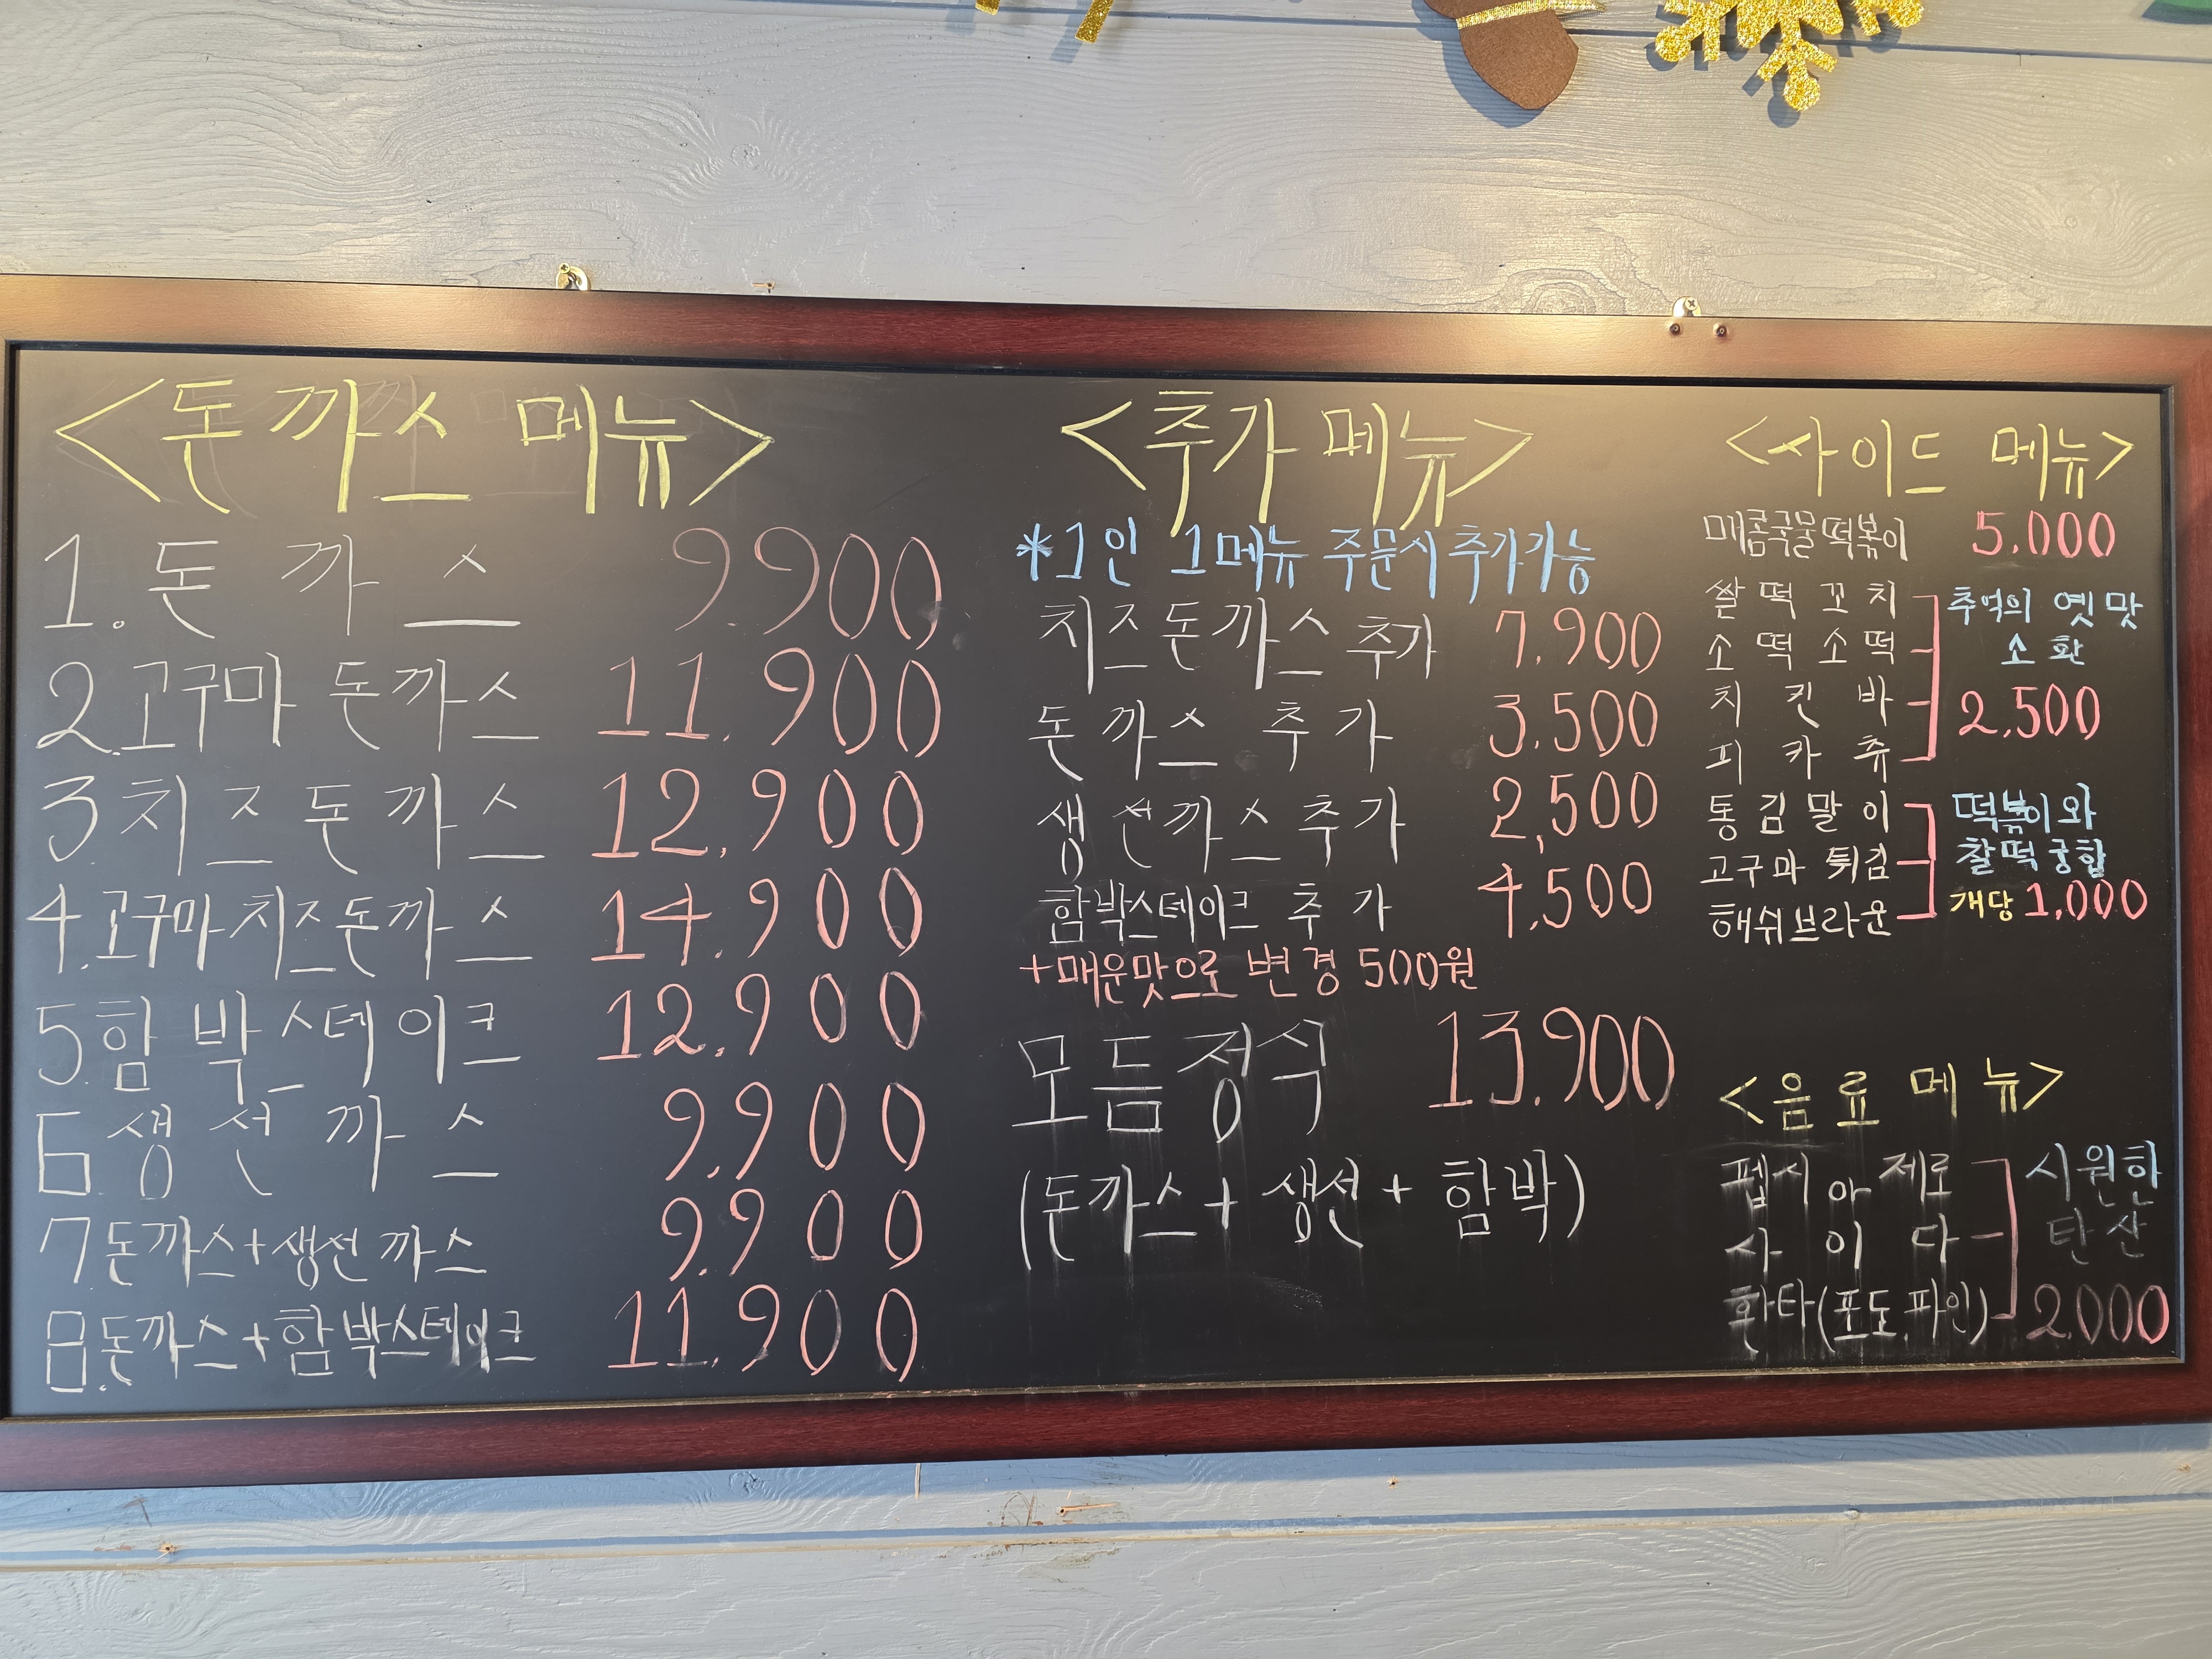 <돈까스 메뉴>
1. 돈까스 9.900
2. 고구마 돈까스 11.900
3. 치즈돈까스 12.900
4. 고구마치즈돈까스 14.900
5. 함박스테이크 12.900
6. 생선까스 9.900
7. 돈까스+생선까스 9.900
8. 돈까스+함박스테이크 11.900
<추가 메뉴>
*1인 1메뉴 주문시 추가가능
치즈돈까스 추가 7.900
돈까스 추가 3.500
생선까스 추가 2,500
함박스테이크 추가 4,500
+매운맛으로 변경 500원
모듬정식 13.900
(돈까스+생선+함박)
<사이드 메뉴>
매콤국물떡볶이 5.000
쌀떡꼬치
소떡소떡
치킨바
피카츄
추억의 옛맛
소환
2,500
통김말이
고구마 튀김
해쉬브라운
떡볶이와
찰떡궁합
개당 1,000
<음료메뉴>
펩시 아 제로
사이다
환타(포도,파인)
시원한
탄산
2.000